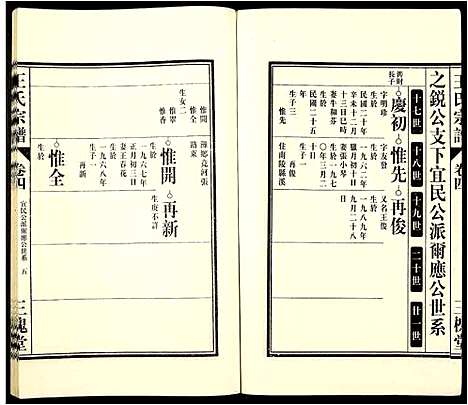 王氏宗譜
卷四
三槐堂
之銳公支下宜民公派爾應公世系
十七世
十八世
十九世
二十世
廿一世
長子
慶初
字明珍
生於
民國二十年
辛未十二月
十三日巳時
妻牛柳芬
生於
民國二十五
年
生子三
惟先
字友發
生於
一九五二年
妻張小琴
生於一九七
〇年三月二
住南陵縣
再俊
又名王俊
生於
一九八九年
惟開
惟翠
惟香
生女二
惟開
生於
一九六七年
正月初三日
妻王春花
生子一
再新
再新
生於
生庚不詳
惟全
生於
一九六八年
王氏宗譜
卷四
宜民公派爾應公世系
五
三槐堂